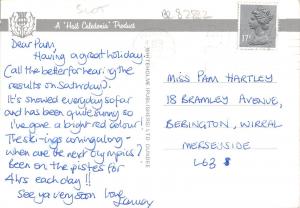 SCOT
A "Hail Caledonia" Product
WHITEHOLME (PUBLISHERS) LTD. DUNDEE
17P
Dear Pam,
Having a great holiday
(all the better for hearing the
results on Saturday).
It's snowed everyday so far
and has been quite sunny so
I've gone a bright red colour!
The ski-ing's coming along -
when are the next olympics?
Been on the pistes for
4hrs each day!!
See ya very soon love
MISS PAM HARTLEY
18 BRAMLEY AVENUE,
BEBINGTON, WIRRAL
MERSEYSIDE
L63